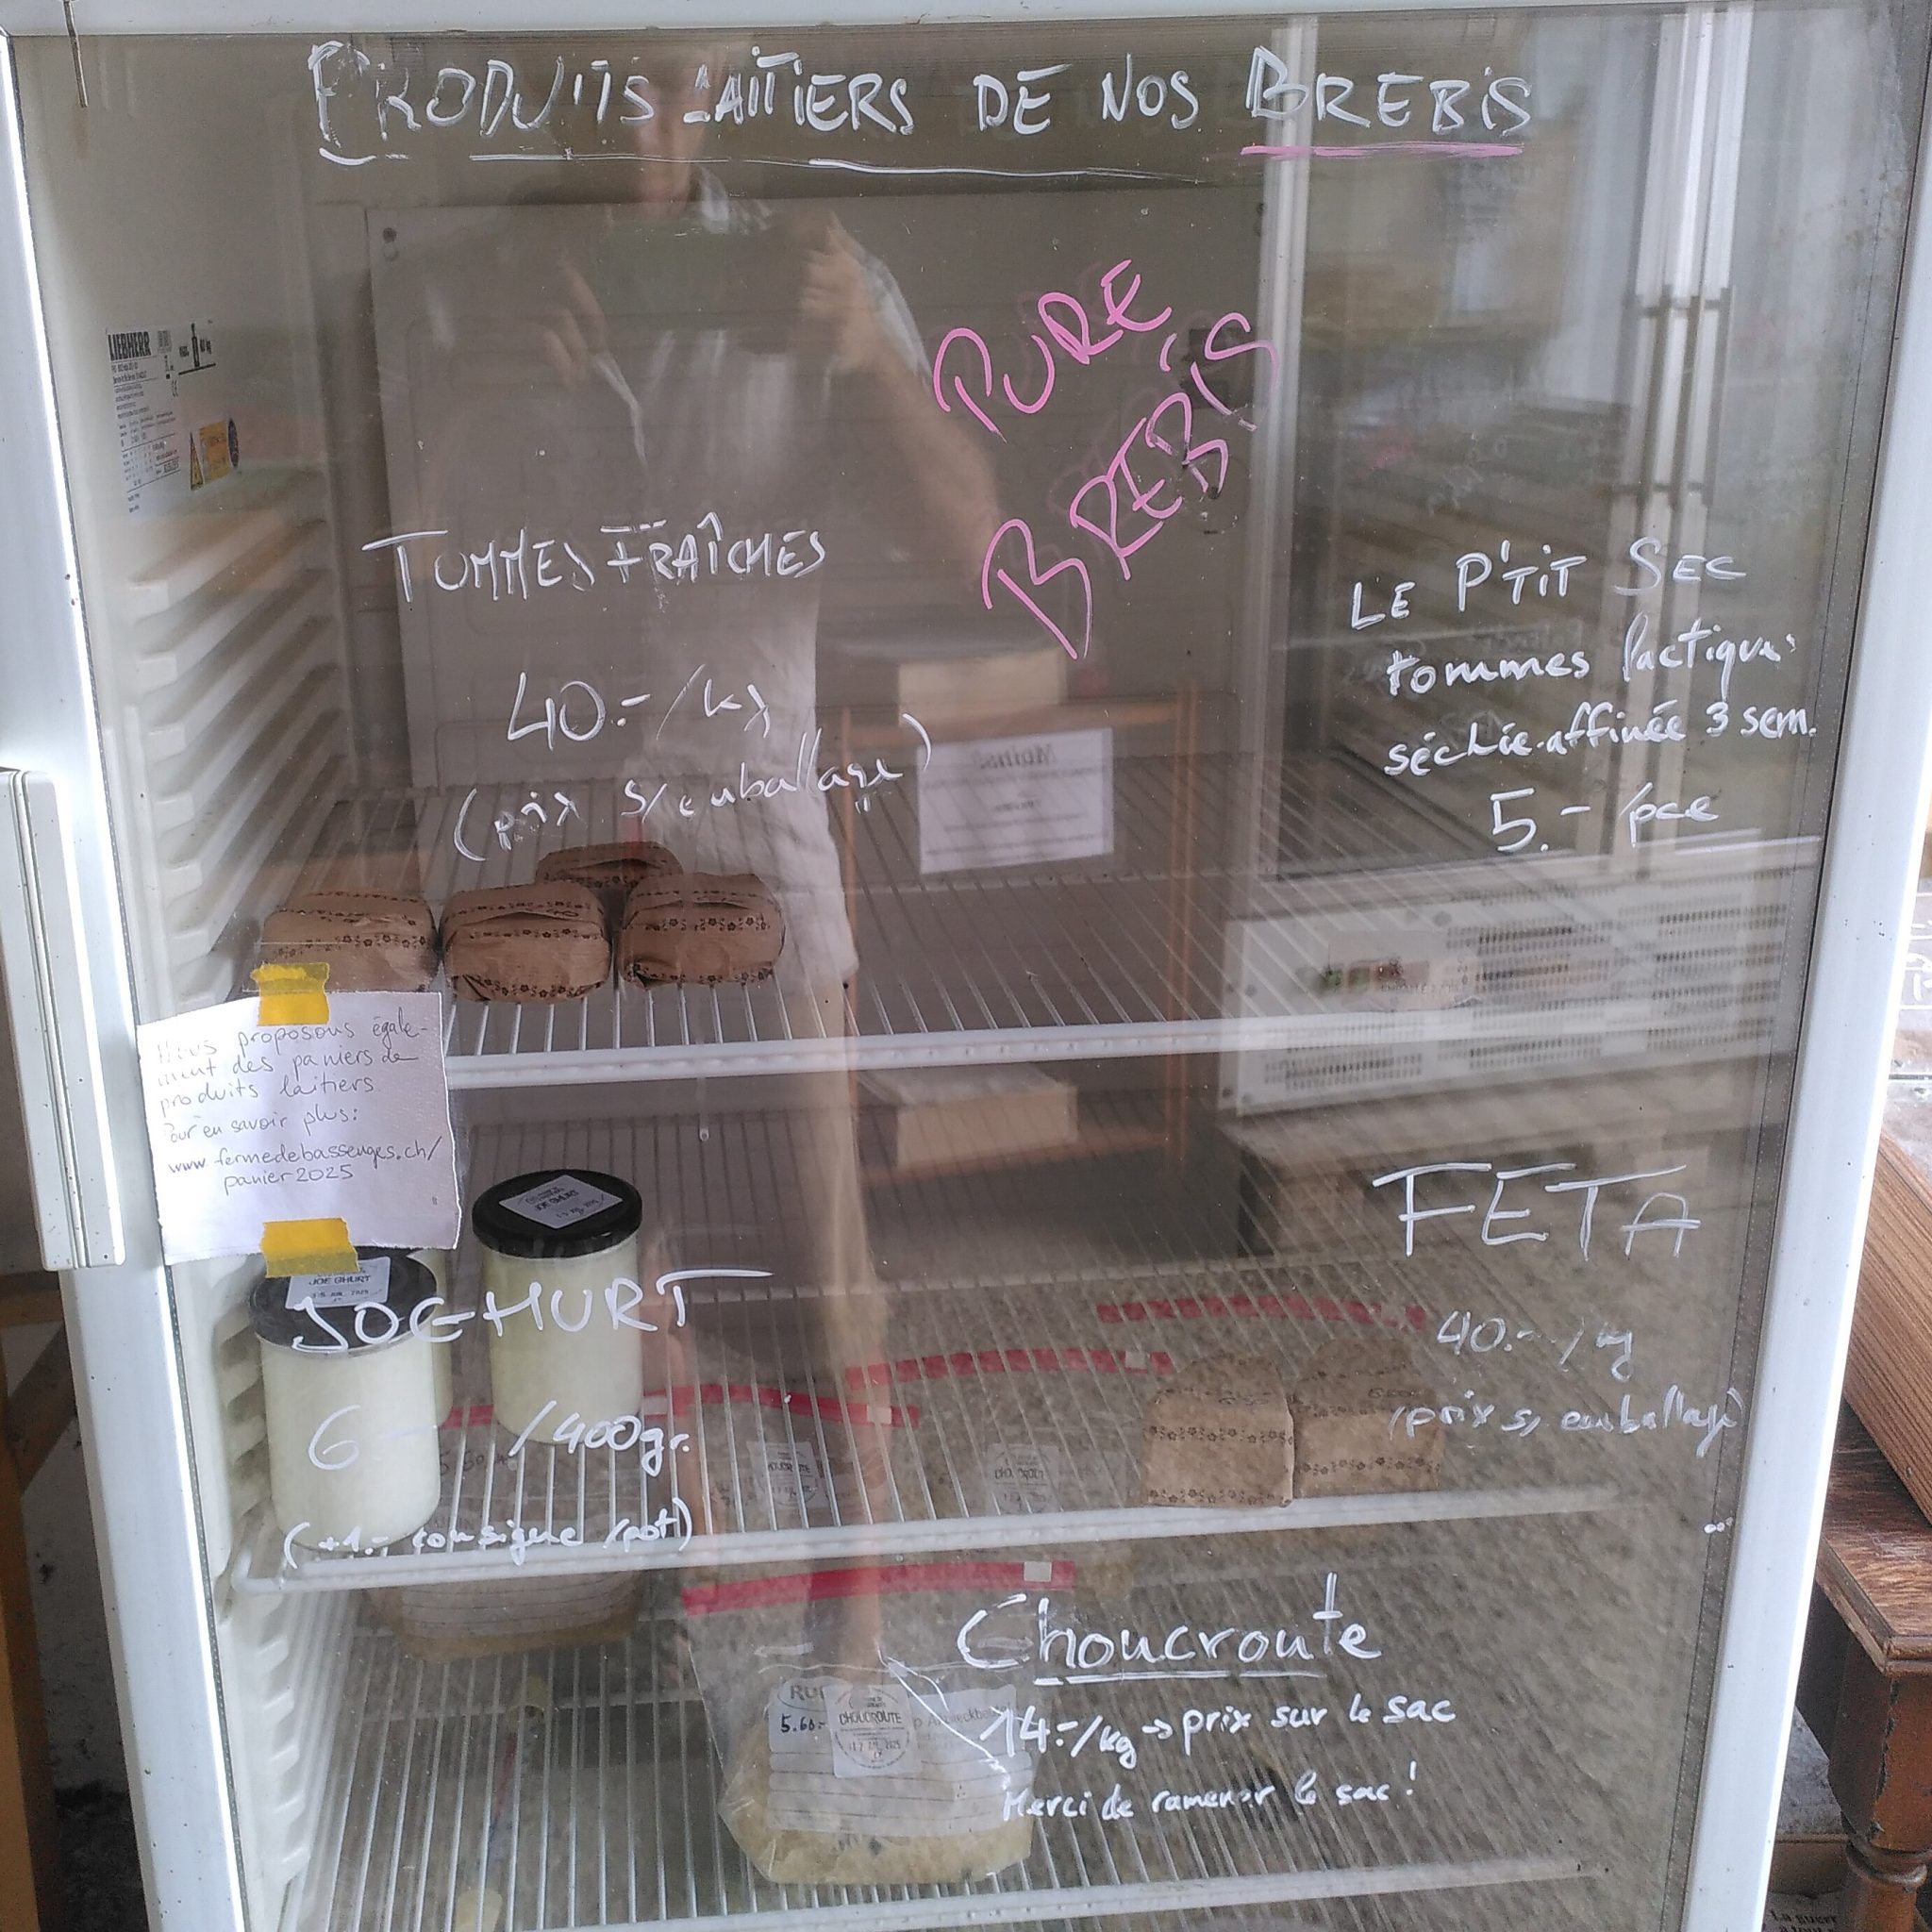 PRODUITS LAITIERS DE NOS BREBIS
PURE
BREBIS
LIEBHERR
TOMMES FRAÎCHES
40.-/kg
(prix s/emballage)
LE P'TIT SEC
tommes lactiques
séchée-affinée 3 sem.
5.- /pce
Nous proposons égale-
ment des paniers de
produits laitiers.
Pour en savoir plus:
www.fermedebassenges.ch/
panier2025
JOGHURT
JOGHURT
JOGHURT
6.- /400gr.
(+1.- consigne /pot)
FETA
40.-/kg
(prix s/ emballage)
CHOUCROUTE
CHOUCROUTE
Choucroute
14.-/kg → prix sur le sac
Merci de ramener le sac!
5.60.-
CHOUCROUTE
La guerre